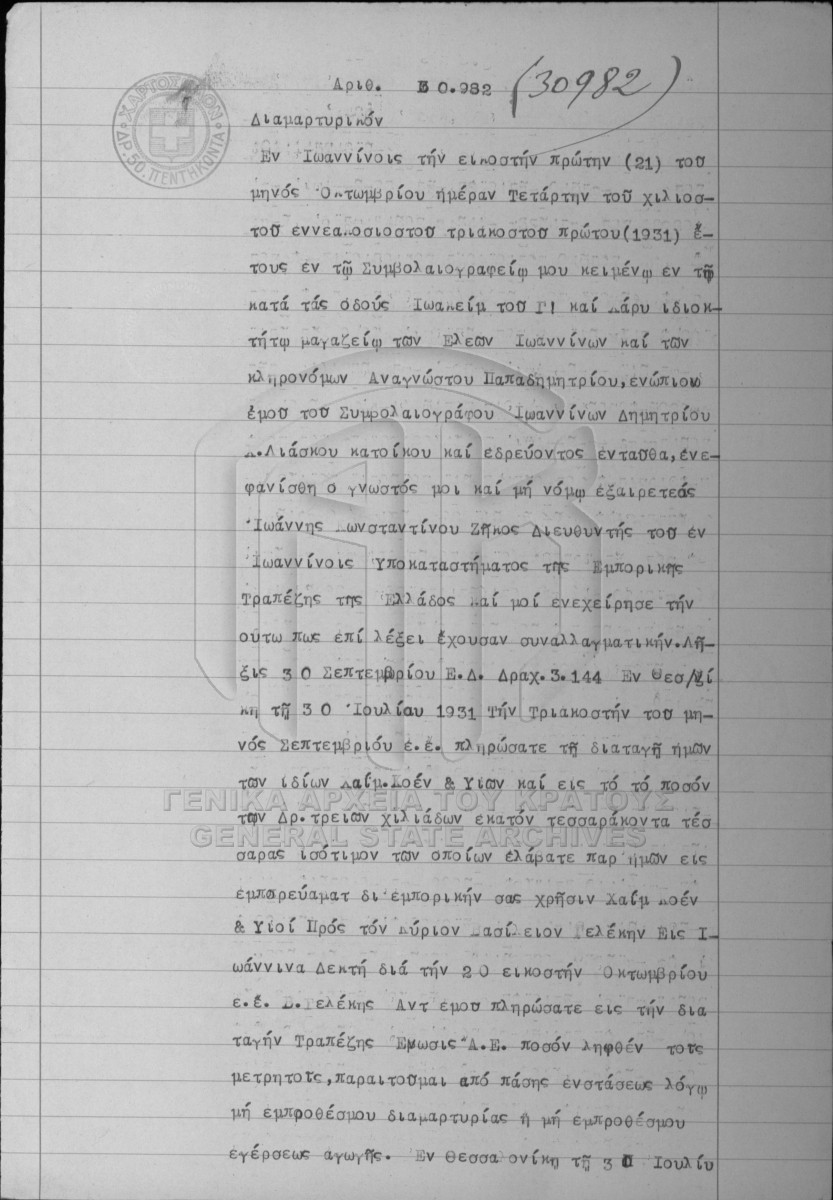 Αριθ. 30.982 (30982)
ΧΑΡΤΟΣΗΜΟΝ
ΔΡ. 50. ΠΕΝΤΗΚΟΝΤΑ
Διαμαρτυρικόν
Εν Ιωαννίνοις τήν εικοστήν πρώτην (21) του
μηνός Οκτωμβρίου ημέραν Τετάρτην τοῦ χιλιοσ-
τοῦ εννεακοσιοστοῦ τριακοστοῦ πρώτου(1931) ἔ-
τους εν τῷ Συμβολαιογραφείῳ μου κειμένῳ εν τῷ
κατά τάς οδούς Ιωακείμ του Γ! καί Κάρυ ιδιοκ-
τήτῳ μαγαζείῳ των Ελεών Ιωαννίνων καί των
κληρονόμων Αναγνώστου Παπαδημητρίου,ενώπιον
ἐμοῦ τοῦ Συμβολαιογράφου Ἰωαννίνων Δημητρίου
Κ.Λιάσκου κατοίκου καί εδρεύοντος ενταῦθα,ἐνε-
φανίσθη ο γνωστός μοι καί μή νόμῳ ἐξαιρετέας
Ἰωάννης Κωνσταντίνου Ζῆκος Διευθυντής τοῦ εν
Ἰωαννίνοις Υποκαταστήματος της Εμπορικῆς
Τραπέζης της Ελλάδος Καί μοί ενεχείρησε τήν
ούτω πως επί λέξει ἔχουσαν συναλλαγματικήν.Λῆ-
ξις 30 Σεπτεμβρίου Ε.Δ. Δραχ.3.144 Εν Θεσ/νί
κη τῇ 30 Ἰουλίου 1931 Τήν Τριακοστήν τοῦ μη-
νός Σεπτεμβρίου ἐ.ἐ. πληρώσατε τῇ διαταγῇ ἡμῶν
των ιδίων Χαΐμ.Κοέν & Υίων καί εις τό τό ποσόν
των Δρ.τρειων χιλιάδων εκατόν τεσσαράκοντα τέσ
σαρας ισότιμον των οποίων ἐλάβατε παρ ἡμων εις
εμπορεύαματ δι εμπορικήν σας χρῆσιν Χαΐμ Κοέν
& Υἱοί Πρός τόν Κύριον Βασίλειον Γελέκην Εις Ι-
ωάννινα Δεκτή διά τήν 20 εικοστήν Οκτωμβρίου
ε.ἔ. Β.Γελέκης Αντ ἐμοῦ πληρώσατε εις τήν δια
ταγήν Τραπέζης Ἑνωσις Α.Ε. ποσόν ληφθέν τοῖς
μετρητοῖς,παραιτοῦμαι από πάσης ενστάσεως λόγῳ
μή εμπροθέσμου διαμαρτυρίας ἤ μή εμπροθέσμου
εγέρσεως αγωγῆς. Εν Θεσσαλονίκῃ τῇ 30 Ιουλίυ
ΓΕΝΙΚΑ ΑΡΧΕΙΑ ΤΟΥ ΚΡΑΤΟΥΣ
GENERAL STATE ARCHIVES